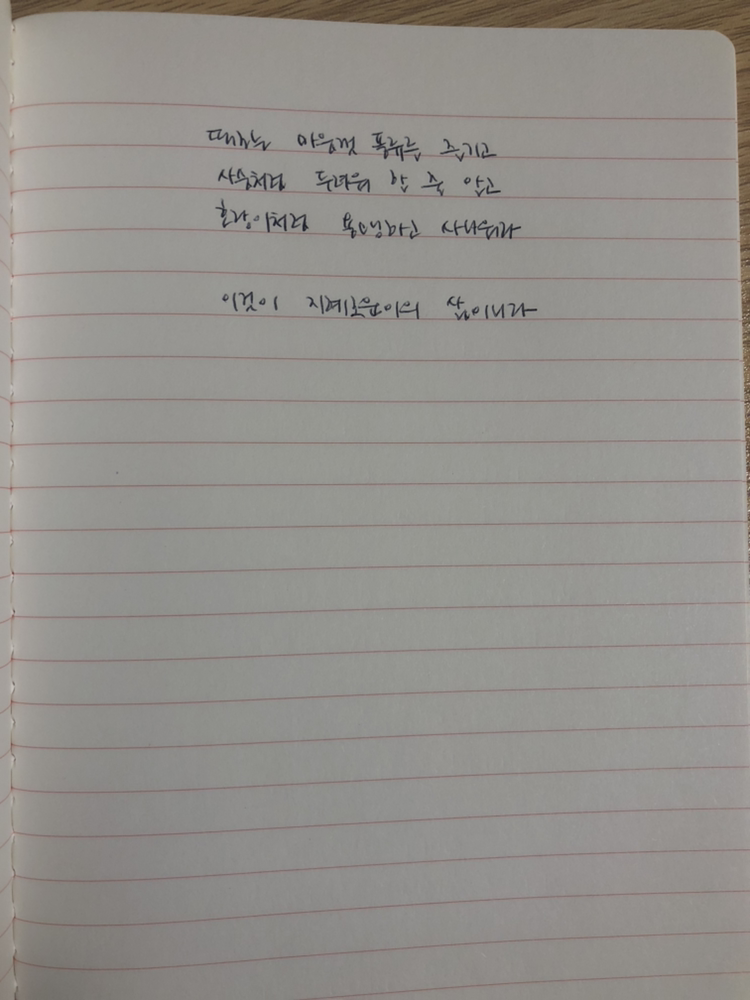 때로는 마음껏 풍류를 즐기고
사슴처럼 두려워 할 줄 알고
호랑이처럼 용맹하고 사나워라
이것이 지혜로운이의 삶이니라